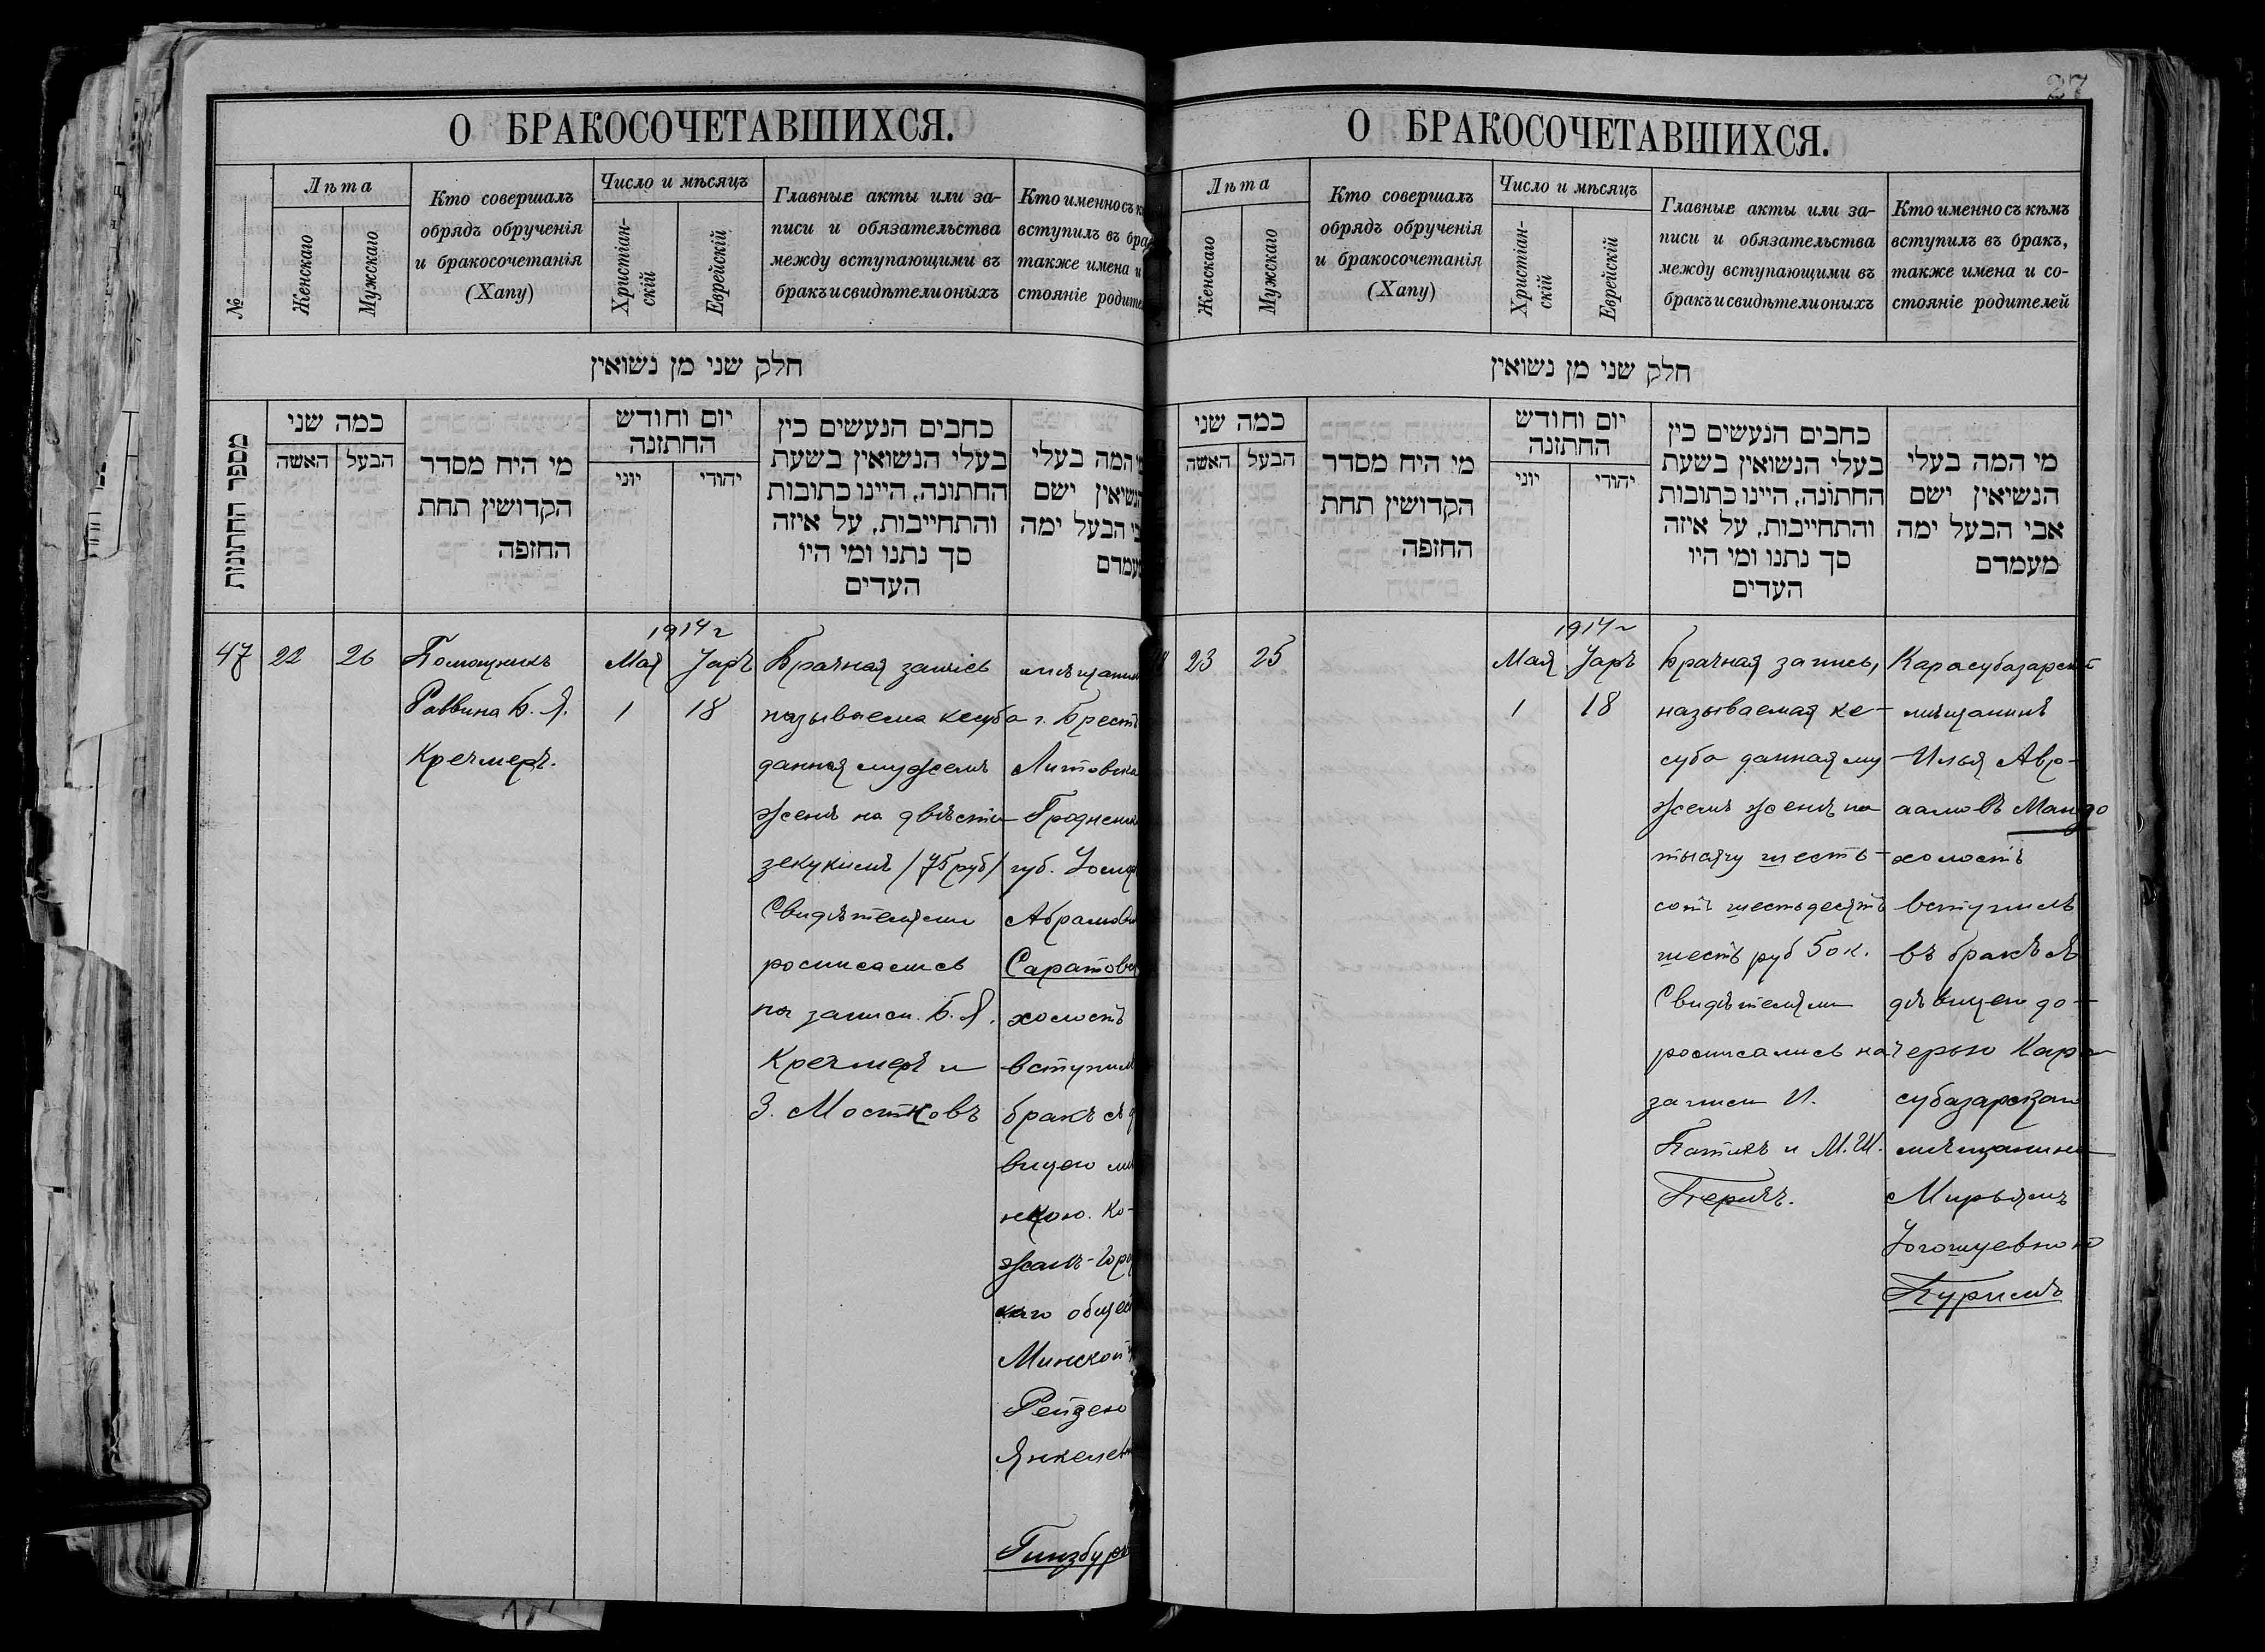 О БРАКОСОЧЕТАВШИХСЯ.
№
Лѣта
Женскаго
Мужскаго
Кто совершалъ
обрядъ обрученія
и бракосочетанія
(Хапу)
Число и мѣсяцъ
Христіан-
скій
Еврейскій
Главные акты или за-
писи и обязательства
между вступающими въ
бракъ и свидѣтели оныхъ
Кто именно съ к
вступилъ въ бра
также имена и
стояніе родите
חלק שני מן נשואין
מספר החתונות
כמה שני
האשה
הבעל
מי היח מסדר
הקדושין תחת
החזפה
יום וחודש
החתזנה
יוני
יהודי
כחבים הנעשים כין
בעלי הנשואין בשעת
החתונה, היינו כתובות
והתחייבות, על איזה
סך נתנו ומי היו
העדים
המה בעלי
הנשיאין ישם
הבעל ימה
מעמדם
47
22
26
Помощникъ
Раввина Б. Я.
Кречмеръ.
1914 г
Мая Іаръ
1 18
Брачная запись
называема кесуба
данная мужемъ
женѣ на двѣсти
зекукимъ (75 руб)
Свидѣтелями
росписались
на записи Б. Я.
Кречмеръ и
З. Мостковъ
мѣщанин
г. Брестъ
Литовска
Гродненск
губ.
Абрамови
Саратовс
холостъ
вступилъ
бракъ съ д
вицею мѣ
Ко-
жанъ-Горо
каго общес
Минской
Рейзею
Янкелев
Гинзбург
27
О БРАКОСОЧЕТАВШИХСЯ.
Лѣта
Женскаго
Мужскаго
Кто совершалъ
обрядъ обрученія
и бракосочетанія
(Хапу)
Число и мѣсяцъ
Христіан-
скій
Еврейскій
Главные акты или за-
писи и обязательства
между вступающими въ
бракъ и свидѣтели оныхъ
Кто именно съ кѣмъ
вступилъ въ бракъ,
также имена и со-
стояніе родителей
חלק שני מן נשואין
כמה שני
האשה
הבעל
מי היח מסדר
הקדושין תחת
החזפה
יום וחודש
החתזנה
יוני
יהודי
כחבים הנעשים כין
בעלי הנשואין בשעת
החתונה, היינו כתובות
והתחייבות, על איזה
סך נתנו ומי היו
העדים
מי המה בעלי
הנשיאין ישם
אבי הבעל ימה
מעמדם
23
25
1914 г
Мая Іаръ
1 18
Брачная запись,
называемая ке-
суба данная му
жемъ женѣ на
тысячу шесть-
сотъ шестьдесятъ
шесть руб 50 к.
Свидѣтелями
росписались на
записи И.
Патикъ и М. Ш.
Перичъ.
Карасубазарскій
мѣщанинъ
Илья Авро-
амовъ Мангдо
холостъ
вступилъ
въ бракъ съ
дѣвицею до-
черью Кара
субазарскаго
мѣщанина
Мирьямъ
Іогошуевною
Пуримъ